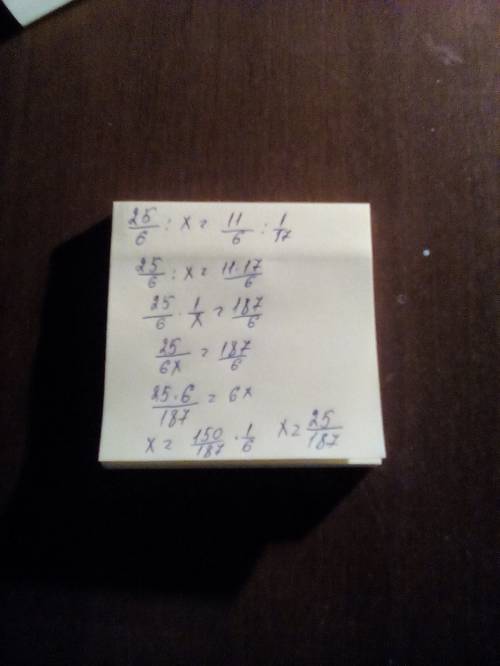 25/6 : x = 11/6 : 1/17
25/6 : x = 11·17/6
25/6 · 1/x = 187/6
25/6x = 187/6
25·6/187 = 6x
x = 150/187 · 1/6   x = 25/187